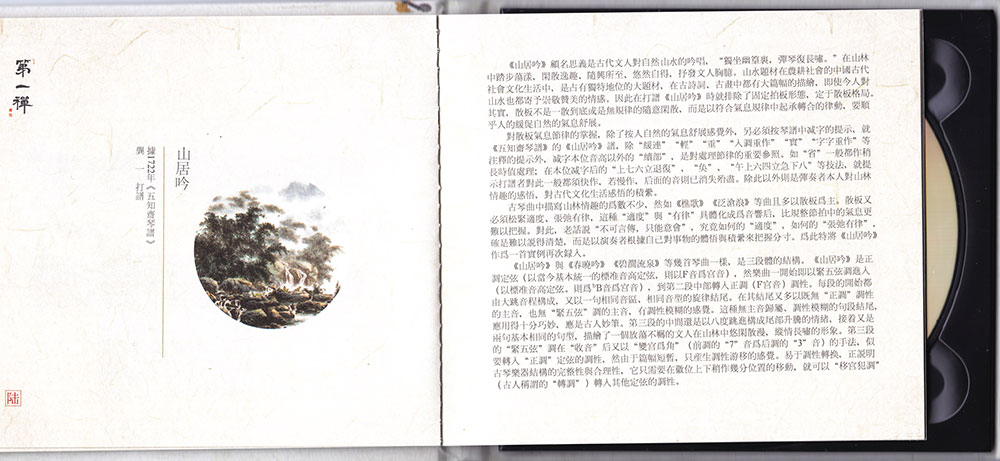 第一禪
山居吟
據1722年《五知齋琴譜》
龔一 打譜
陸
《山居吟》顧名思義是古代文人對自然山水的吟唱，“獨坐幽篁裏，彈琴復長嘯。”在山林
中踏步蕩漾，閑散逸趣，隨興所至，悠然自得，抒發文人胸臆。山水題材在農耕社會的中國古代
社會文化生活中，是占有獨特地位的大題材，在古詩詞、古畫中都有大篇幅的描繪，即使今人對
山水也都寄于崇敬贊美的情感。因此在打譜《山居吟》時就排除了固定拍板形態，定于散板格局。
其實，散板不是一散到底或是無規律的隨意閑散，而是以符合氣息規律中起承轉合的律動，要順
乎人的緩促自然的氣息舒展。
對散板氣息節律的掌握，除了按人自然的氣息舒展感覺外，另必須按琴譜中减字的提示，就
《五知齋琴譜》的《山居吟》譜，除“緩連”“輕”“重”“入調重作”“實”“字字重作”等
注釋的提示外，减字本位音高以外的“續部”，是對處理節律的重要參照。如“省”一般都作稍
長時值處理；在本位减字后的“上七六立退復”，“奐”，“午上六四立急下八”等技法，就提
示打譜者對此一般都須快作，若慢作，后面的音則已消失殆盡。除此以外則是彈奏者本人對山林
情趣的感悟，對古代文化生活感悟的積纍。
古琴曲中描寫山林情趣的爲數不少，然如《樵歌》《泛滄浪》等曲且多以散板爲主。散板又
必須松緊適度、張弛有律，這種“適度”與“有律”具體化成爲音響后，比規整節拍中的氣息更
難以把握。對此，老話説“不可言傳，只能意會”，究竟如何的“適度”，如何的“張弛有律”，
確是難以説得清楚，而是以演奏者根據自己對事物的體悟與積纍來把握分寸。爲此特將《山居吟》
作爲一首實例再次録入。
《山居吟》與《春曉吟》《碧澗流泉》等幾首琴曲一樣，是三段體的結構。《山居吟》是正
調定弦（以當今基本統一的標准音高定弦，則以F音爲宮音），然樂曲一開始即以緊五弦調進入
（以標准音高定弦，則爲♭B音爲宮音），到第二段中部轉入正調（F宮音）調性。每段的開始都
由大跳音程構成，又以一句相同音區、相同音型的旋律結尾。在其結尾又多以既無“正調”調性
的主音，也無“緊五弦”調的主音，有調性模糊的感覺。這種無主音歸屬、調性模糊的句段結尾，
應用得十分巧妙，應是古人妙筆。第三段的中間還是以八度跳進構成尾部升騰的情緒，接着又是
兩句基本相同的句型，描繪了一個放蕩不羈的文人在山林中悠閑散漫，縱情長嘯的形象。第三段
的“緊五弦”調在“收音”后又以“變宮爲角”（前調的“7”音爲后調的“3”音）的手法，似
要轉入“正調”定弦的調性，然由于篇幅短暫，只産生調性游移的感覺。易于調性轉換，正説明
古琴樂器結構的完整性與合理性，它只需要在徽位上下稍作幾分位置的移動，就可以“移宮犯調”
（古人稱謂的“轉調”）轉入其他定弦的調性。